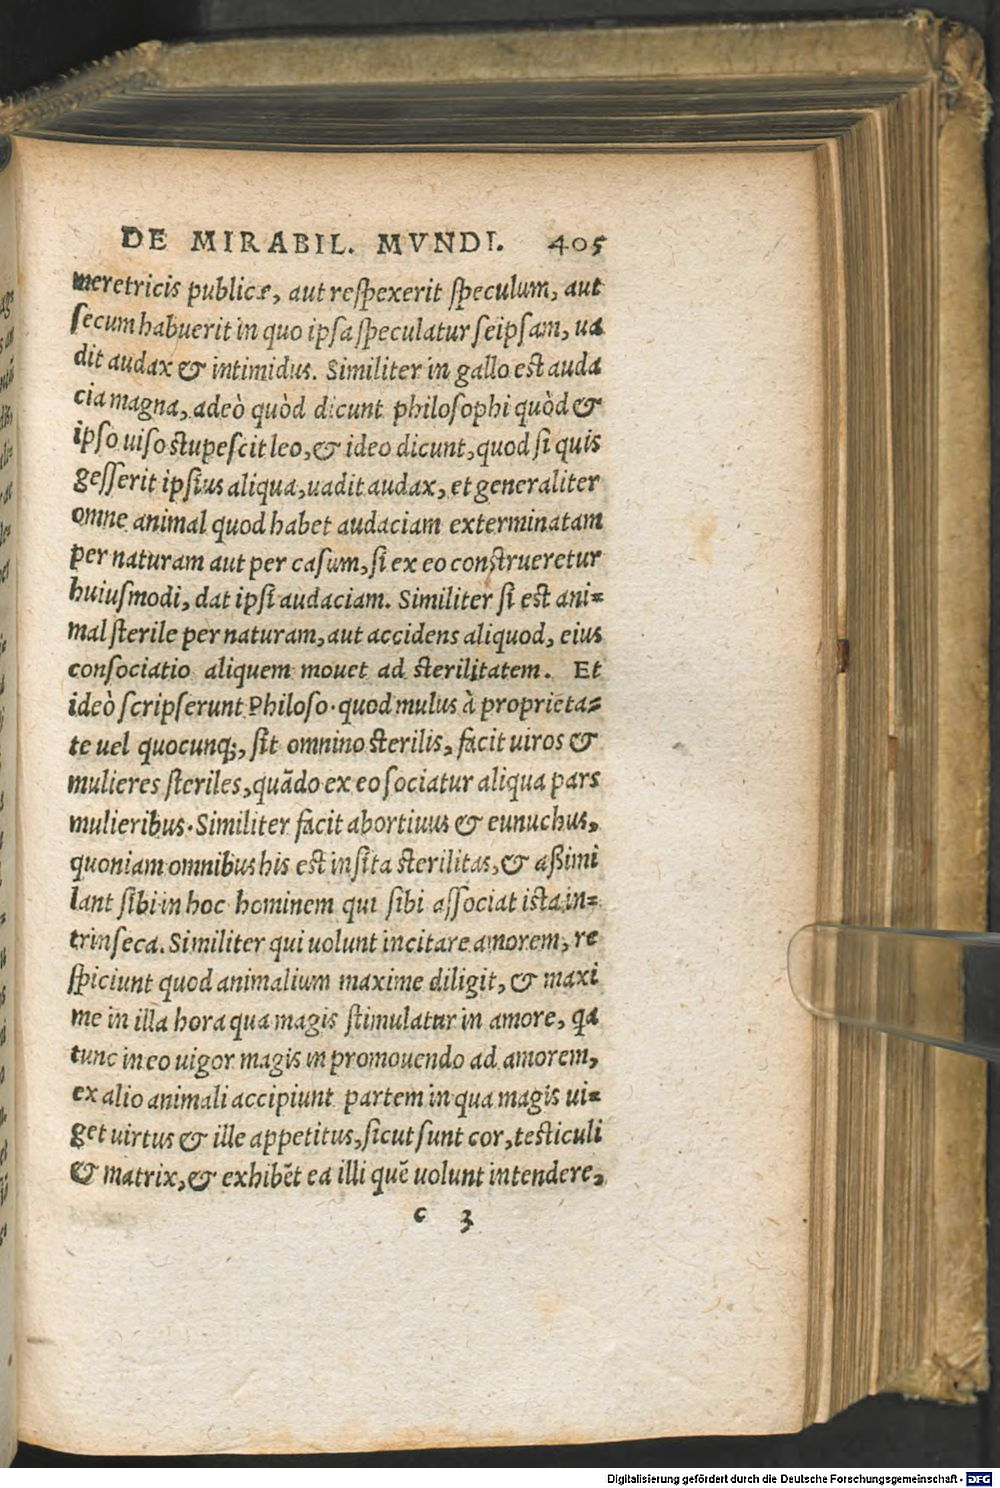 DE MIRABIL. MVNDI. 405
meretricis publicæ, aut respexerit speculum, aut
secum habuerit in quo ipsa speculatur seipsam, ua
dit audax & intimidus. Similiter in gallo est auda
cia magna, adeò quòd dicunt philosophi quòd &
ipso uiso stupescit leo, & ideo dicunt, quod si quis
gesserit ipsius aliqua, uadit audax, et generaliter
omne animal quod habet audaciam exterminatam
per naturam aut per casum, si ex eo construeretur
huiusmodi, dat ipsi audaciam. Similiter si est ani=
mal sterile per naturam, aut accidens aliquod, eius
consociatio aliquem mouet ad sterilitatem. Et
ideò scripserunt Philoso. quod mulus à proprieta=
te uel quocunq;, sit omnino sterilis, facit uiros &
mulieres steriles, quãdo ex eo sociatur aliqua pars
mulieribus. Similiter facit abortiuus & eunuchus,
quoniam omnibus his est insita sterilitas, & aßimi
lant sibi in hoc hominem qui sibi associat ista in=
trinseca. Similiter qui uolunt incitare amorem, re
spiciunt quod animalium maxime diligit, & maxi
me in illa hora qua magis stimulatur in amore, qa
tunc in eo uigor magis in promouendo ad amorem,
ex alio animali accipiunt partem in qua magis ui=
get uirtus & ille appetitus, sicut sunt cor, testiculi
& matrix, & exhibẽt ea illi quẽ uolunt intendere,
c 3
Digitalisierung gefördert durch die Deutsche Forschungsgemeinschaft - DFG